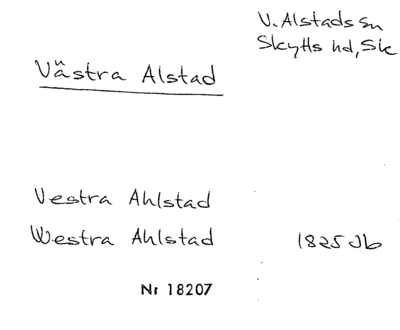 V. Alstads sn
Skytts hd, Sk
Västra Alstad
Vestra Ahlstad
Westra Ahlstad 1825 Jb
Nr 18207